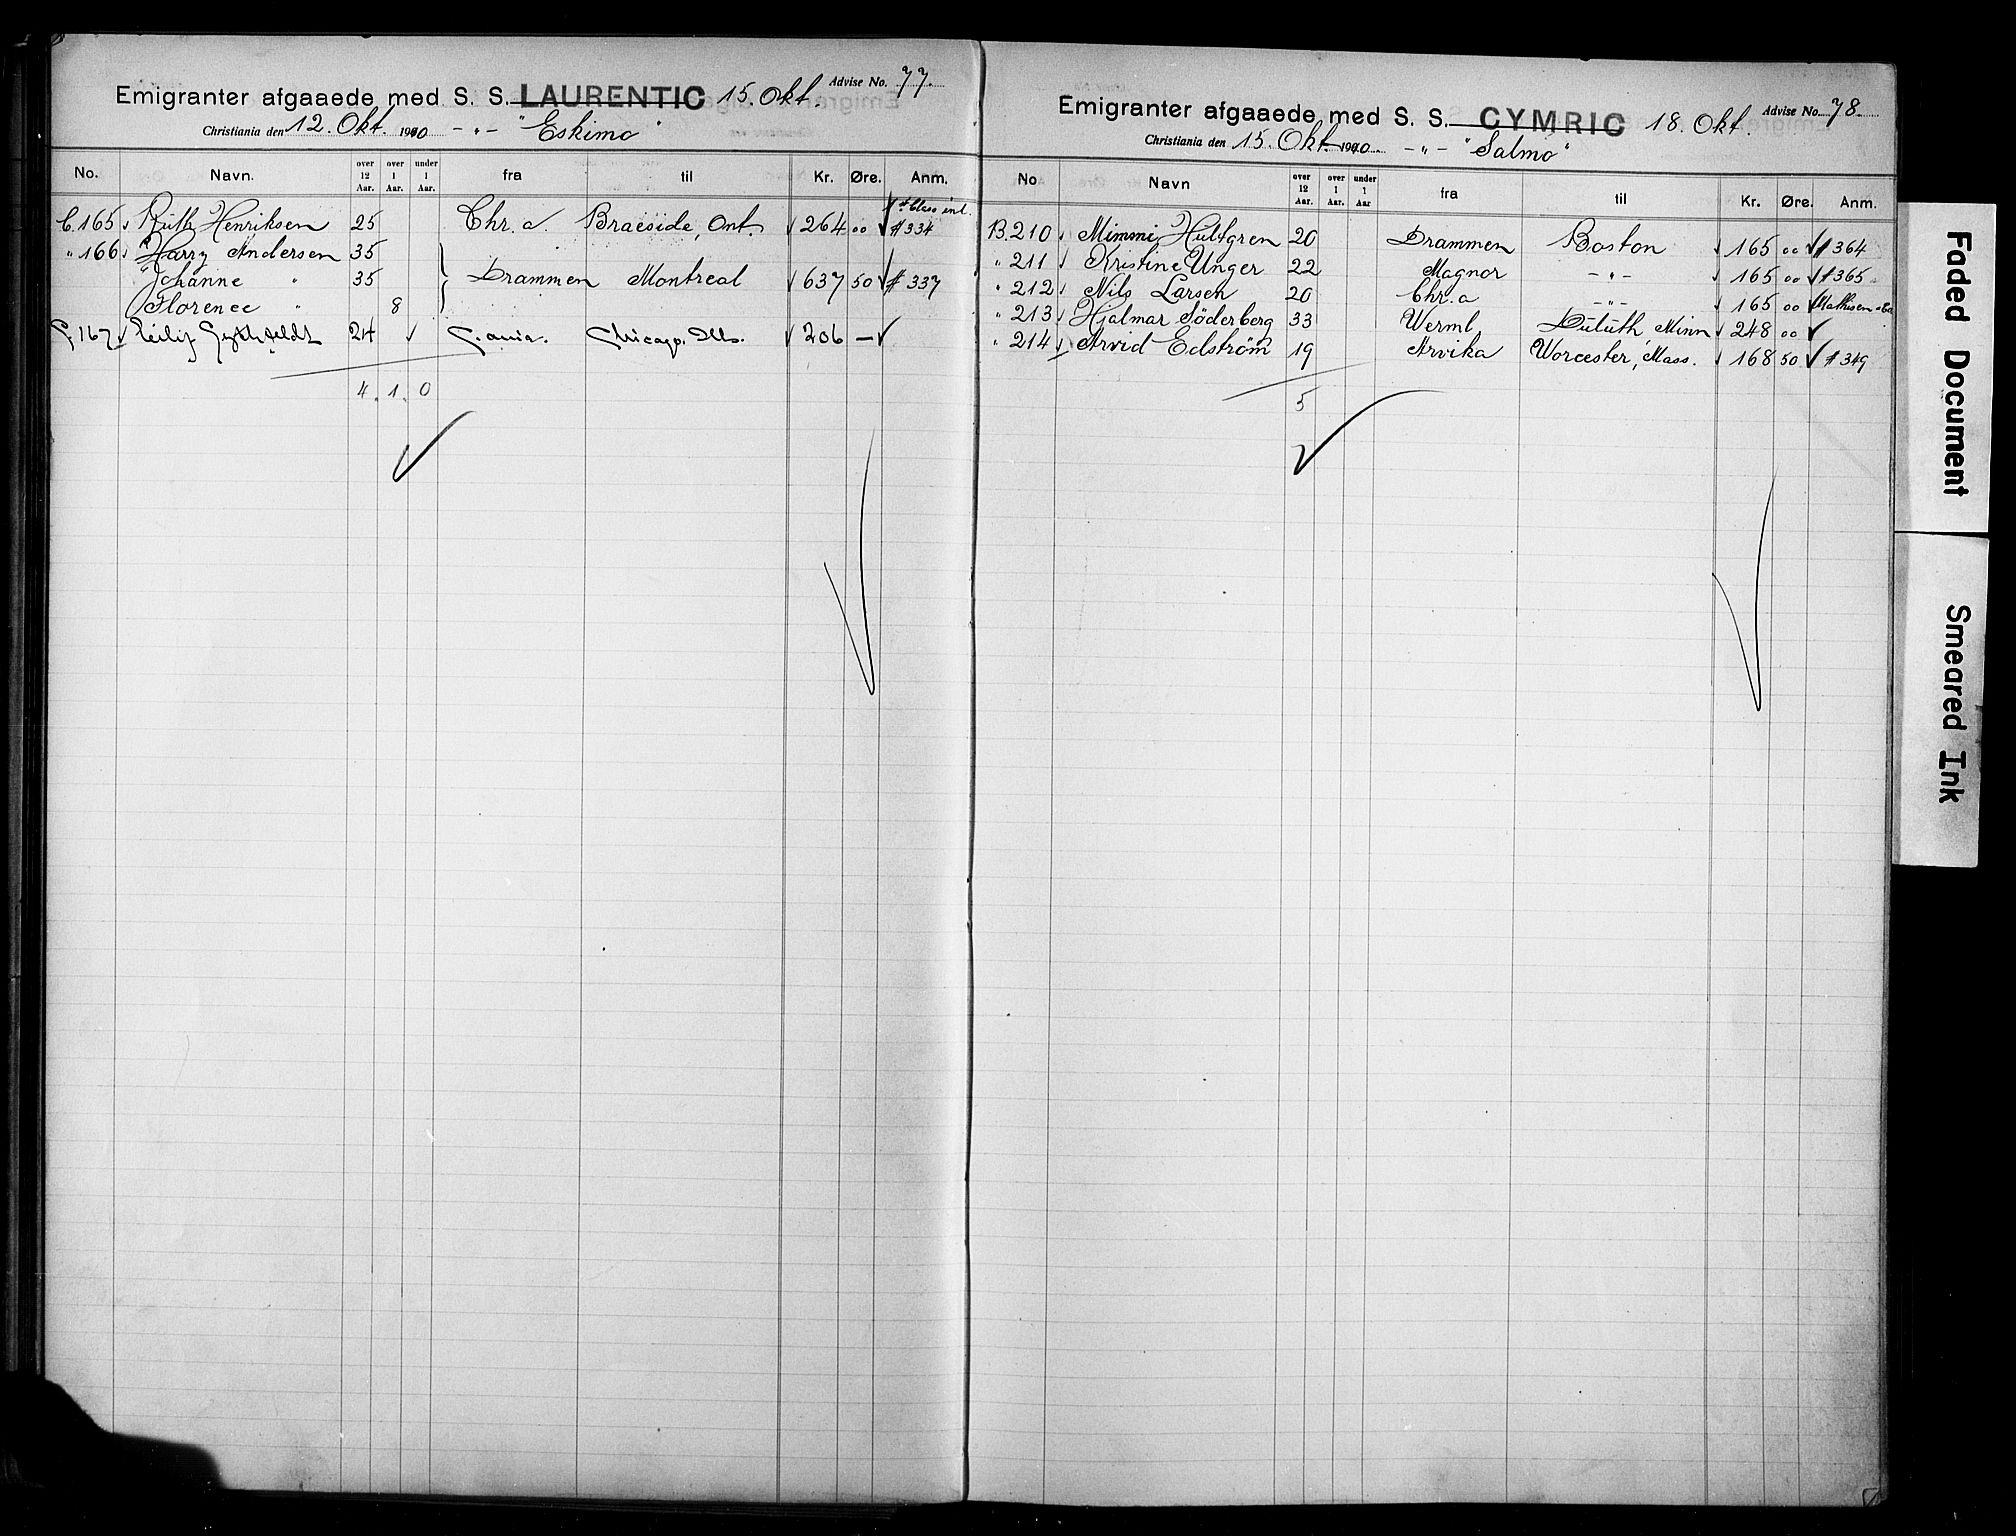 Emigranter afgaaede med S. S. LAURENTIC 15. Okt. Advise No. 77.
Christiania den 12. Okt. 1910 - " - "Eskimo"
No. Navn. over 12 Aar. over 1 Aar. under 1 Aar. fra til Kr. Øre. Anm.
C. 165 Ruth Henriksen 25 Chr.a. Braeside, Ont. 264 00 # 334
" 166 Harry Andersen 35
Johanne " 35 Drammen Montreal 637 50 # 337
Florence " 8
167 24 Chicago, Ills. 206 —
4 1 0
Emigranter afgaaede med S. S. CYMRIC 18. Okt. Advise No. 78
Christiania den 15. Okt. 1910 - " - "Salmo"
No Navn over 12 Aar. over 1 Aar. under 1 Aar fra til Kr. Øre. Anm.
B. 210 Mimmi Hultgren 20 Drammen Boston 165 00 # 364
" 211 Kristine Unger 22 Magnor - " - 165 00 # 365
" 212 Nils Larsen 20 Chr.a - " - 165 00 Mathisen
" 213 Hjalmar Söderberg 33 Werml. Duluth Minn 248 00
" 214 Arvid Edström 19 Arvika Worcester, Mass. 168 50 # 349
5
Faded Document
Smeared Ink